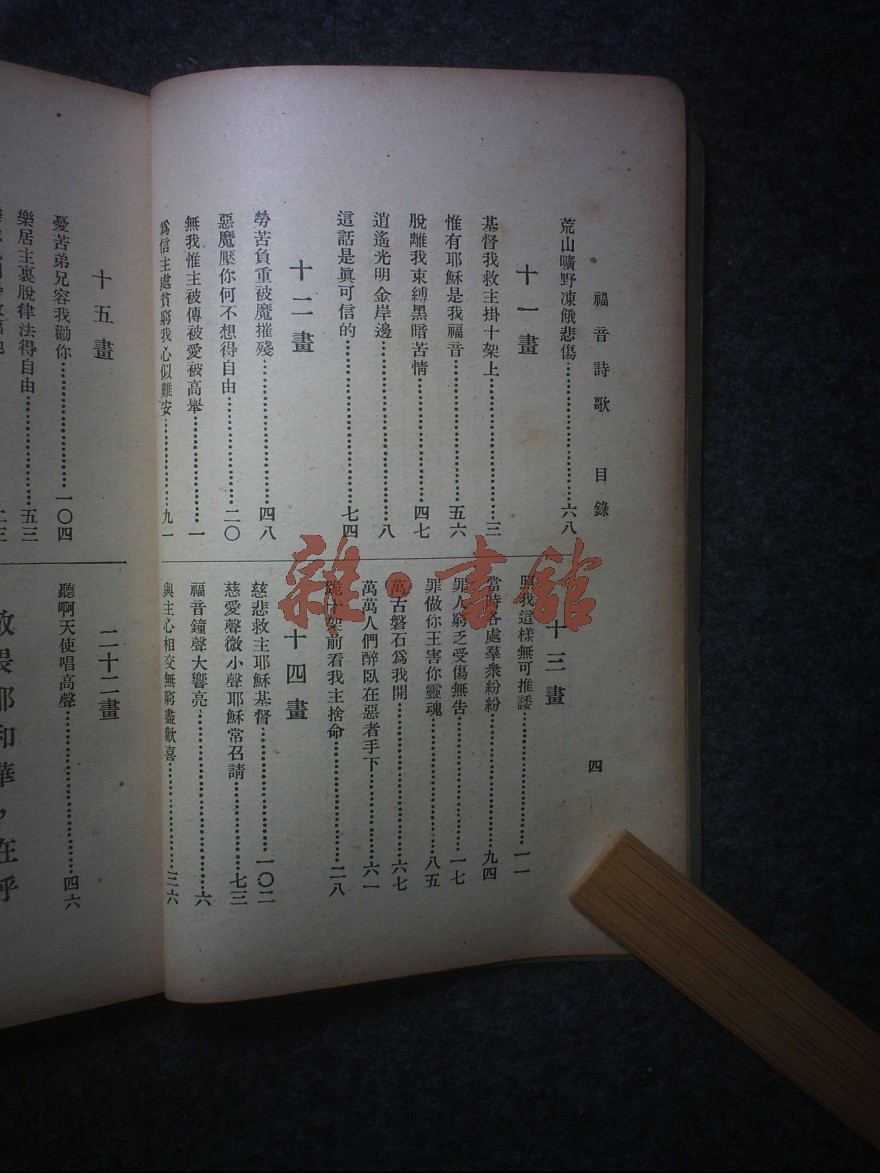 福音詩歌 目錄
四
荒山曠野凍餓悲傷……六八
十一畫
基督我救主掛十架上……三
惟有耶穌是我福音……五六
脫離我束縛黑暗苦情……四七
逍遙光明金岸邊……八
這話是眞可信的……七四
十二畫
勞苦負重被魔摧殘……四八
惡魔壓你何不想得自由……二〇
無我惟主被傳被愛被高舉……一
爲信主處貧窮我心似難安……九一
十三畫
照我這樣無可推諉……一一
當時各處羣衆紛紛……九四
罪人窮乏受傷無告……一七
罪做你王害你靈魂……八五
萬古磐石爲我開……六七
萬萬人們醉臥在惡者手下……六一
跪十架前看我主捨命……二八
十四畫
慈悲救主耶穌基督……一〇二
慈愛聲微小聲耶穌常召請……七三
福音鐘聲大響亮……六
與主心相交無窮盡歡喜……三六
十五畫
憂苦弟兄容我勸你……一〇四
樂居主裏脫律法得自由……五三
二十二畫
聽啊天使唱高聲……四六
敬畏耶和華，在乎
雜·書館